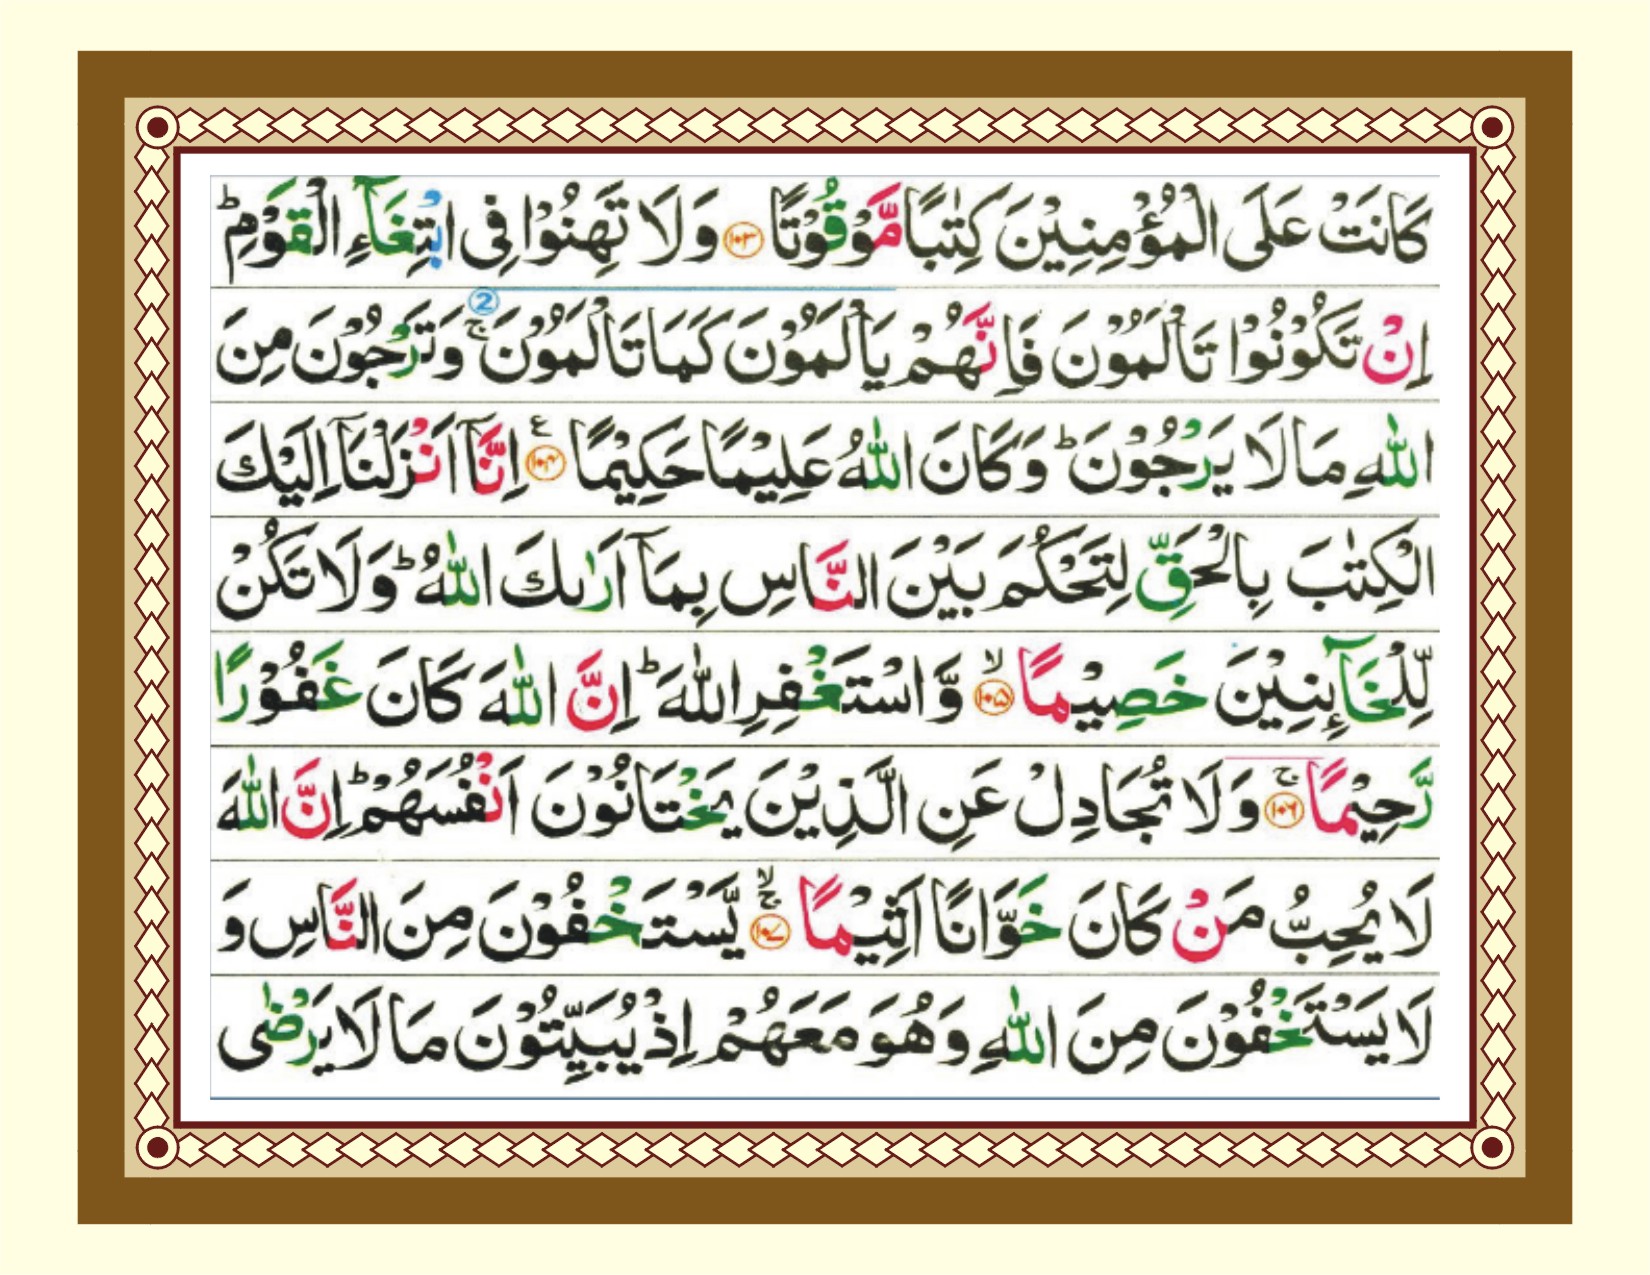 كَانَتْ عَلَى الْمُؤْمِنِيْنَ كِتٰبًا مَّوْقُوْتًا ۝۱۰۳ وَلَا تَهِنُوْا فِى ابْتِغَآءِ الْقَوْمِ ؕ
②
اِنْ تَكُوْنُوْا تَاْلَمُوْنَ فَاِنَّهُمْ يَاْلَمُوْنَ كَمَا تَاْلَمُوْنَ ۚ وَتَرْجُوْنَ مِنَ
اللّٰهِ مَا لَا يَرْجُوْنَ ؕ وَكَانَ اللّٰهُ عَلِيْمًا حَكِيْمًا ۝۱۰۴ ع اِنَّآ اَنْزَلْنَآ اِلَيْكَ
الْكِتٰبَ بِالْحَقِّ لِتَحْكُمَ بَيْنَ النَّاسِ بِمَآ اَرٰىكَ اللّٰهُ ؕ وَلَا تَكُنْ
لِّلْخَآئِنِيْنَ خَصِيْمًا ۝۱۰۵ ۙ وَّاسْتَغْفِرِ اللّٰهَ ؕ اِنَّ اللّٰهَ كَانَ غَفُوْرًا
رَّحِيْمًا ۝۱۰۶ ۚ وَلَا تُجَادِلْ عَنِ الَّذِيْنَ يَخْتَانُوْنَ اَنْفُسَهُمْ ؕ اِنَّ اللّٰهَ
لَا يُحِبُّ مَنْ كَانَ خَوَّانًا اَثِيْمًا ۝۱۰۷ ۚۙ يَّسْتَخْفُوْنَ مِنَ النَّاسِ وَ
لَا يَسْتَخْفُوْنَ مِنَ اللّٰهِ وَهُوَ مَعَهُمْ اِذْ يُبَيِّتُوْنَ مَا لَا يَرْضٰى